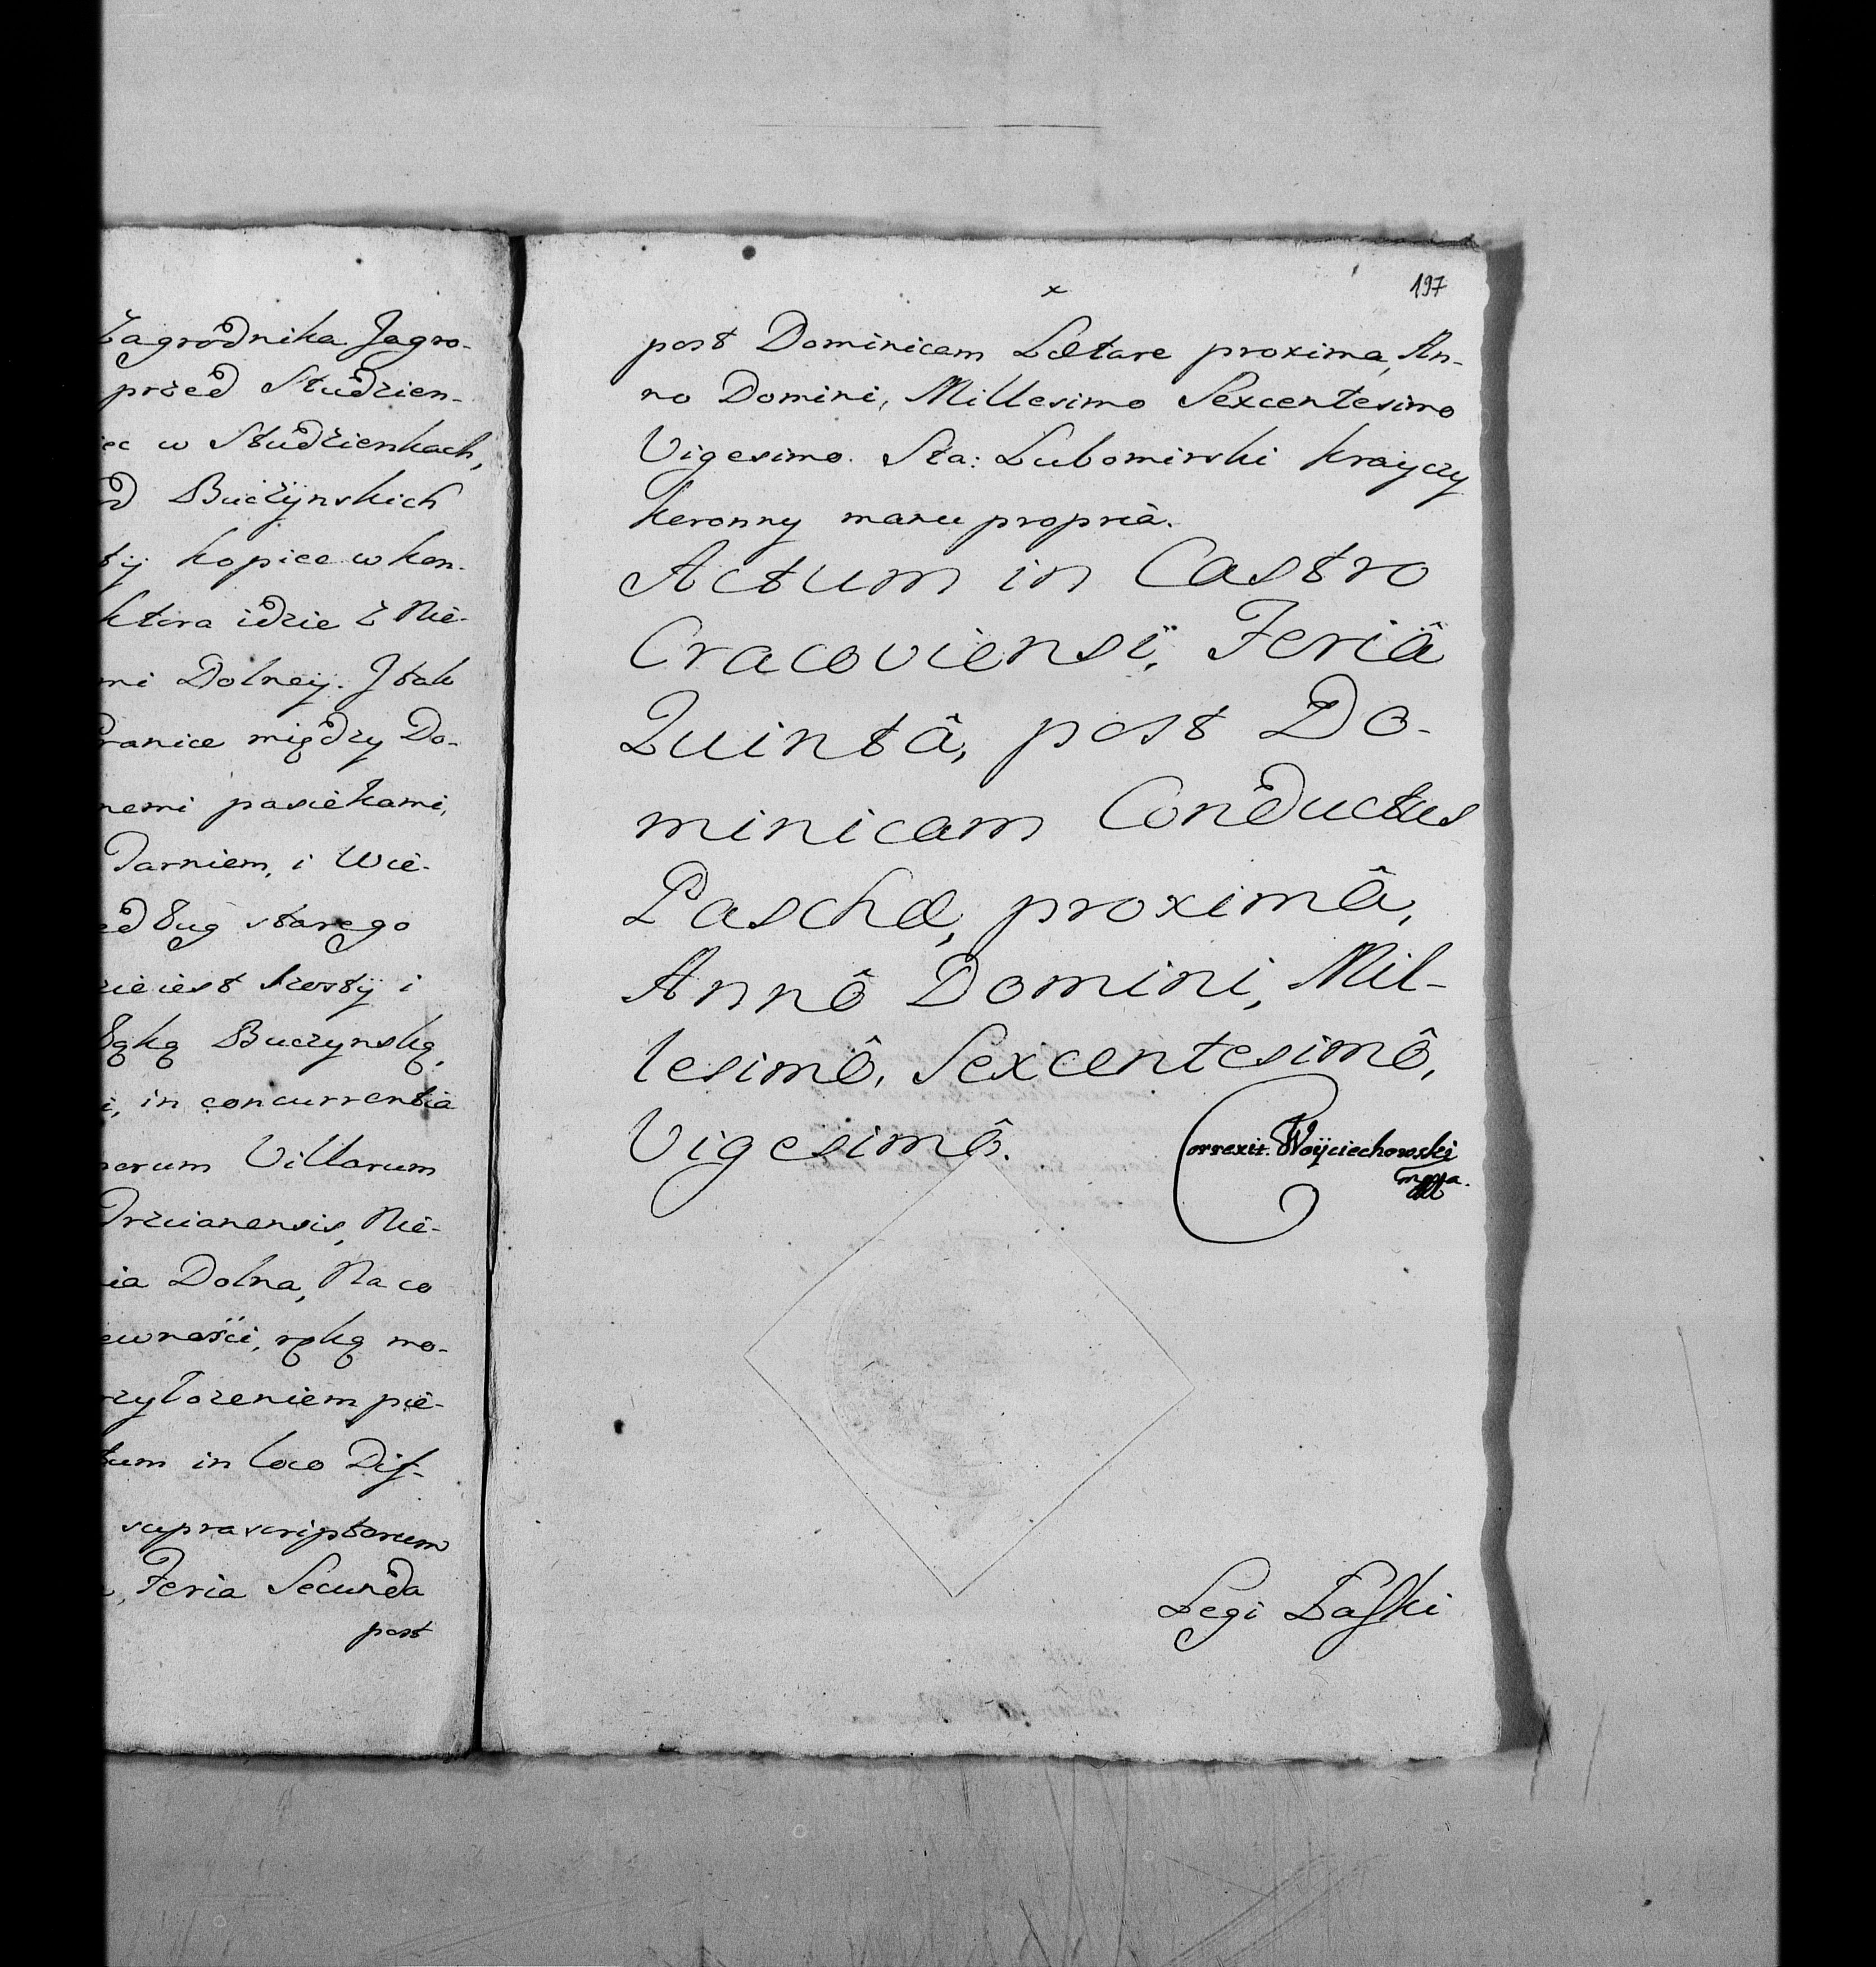 Zagrôdnika Jagro-
przed Studzien-
iec w Studzienkach,
od Buczÿnskich
tÿ kopiec w kon-
ktora idzie z Nie-
mi Dolneÿ. J tak
Granice między Do-
nemi pasiekami,
Tarniem, i Wie-
edług starego
zie iest szostÿ i
łąką Buczynską,
i, in concurrentia
narum Villarum
Drzcianensis, Nie-
ia Dolna, Na co
ewności, ręką mo-
rzyłozeniem pie-
tum in loco Dif-
suprascriptorum
Feria Secunda
post
197
post Dominicam Lætare proxima, An-
no Domini, Millesimo Sexcentesimo
Vigesimo. Sta: Lubomirski Krayczy
Koronny manu propriâ.
Actum in Castro
Cracoviensi, Feriâ
Quintâ, post Do-
minicam Conductus
Paschæ, proximâ,
Annô Domini, Mil-
lesimô, Sexcentesimô,
Vigesimô.
Correxit. Woÿciechowski
mppa.
Legi Łaſki